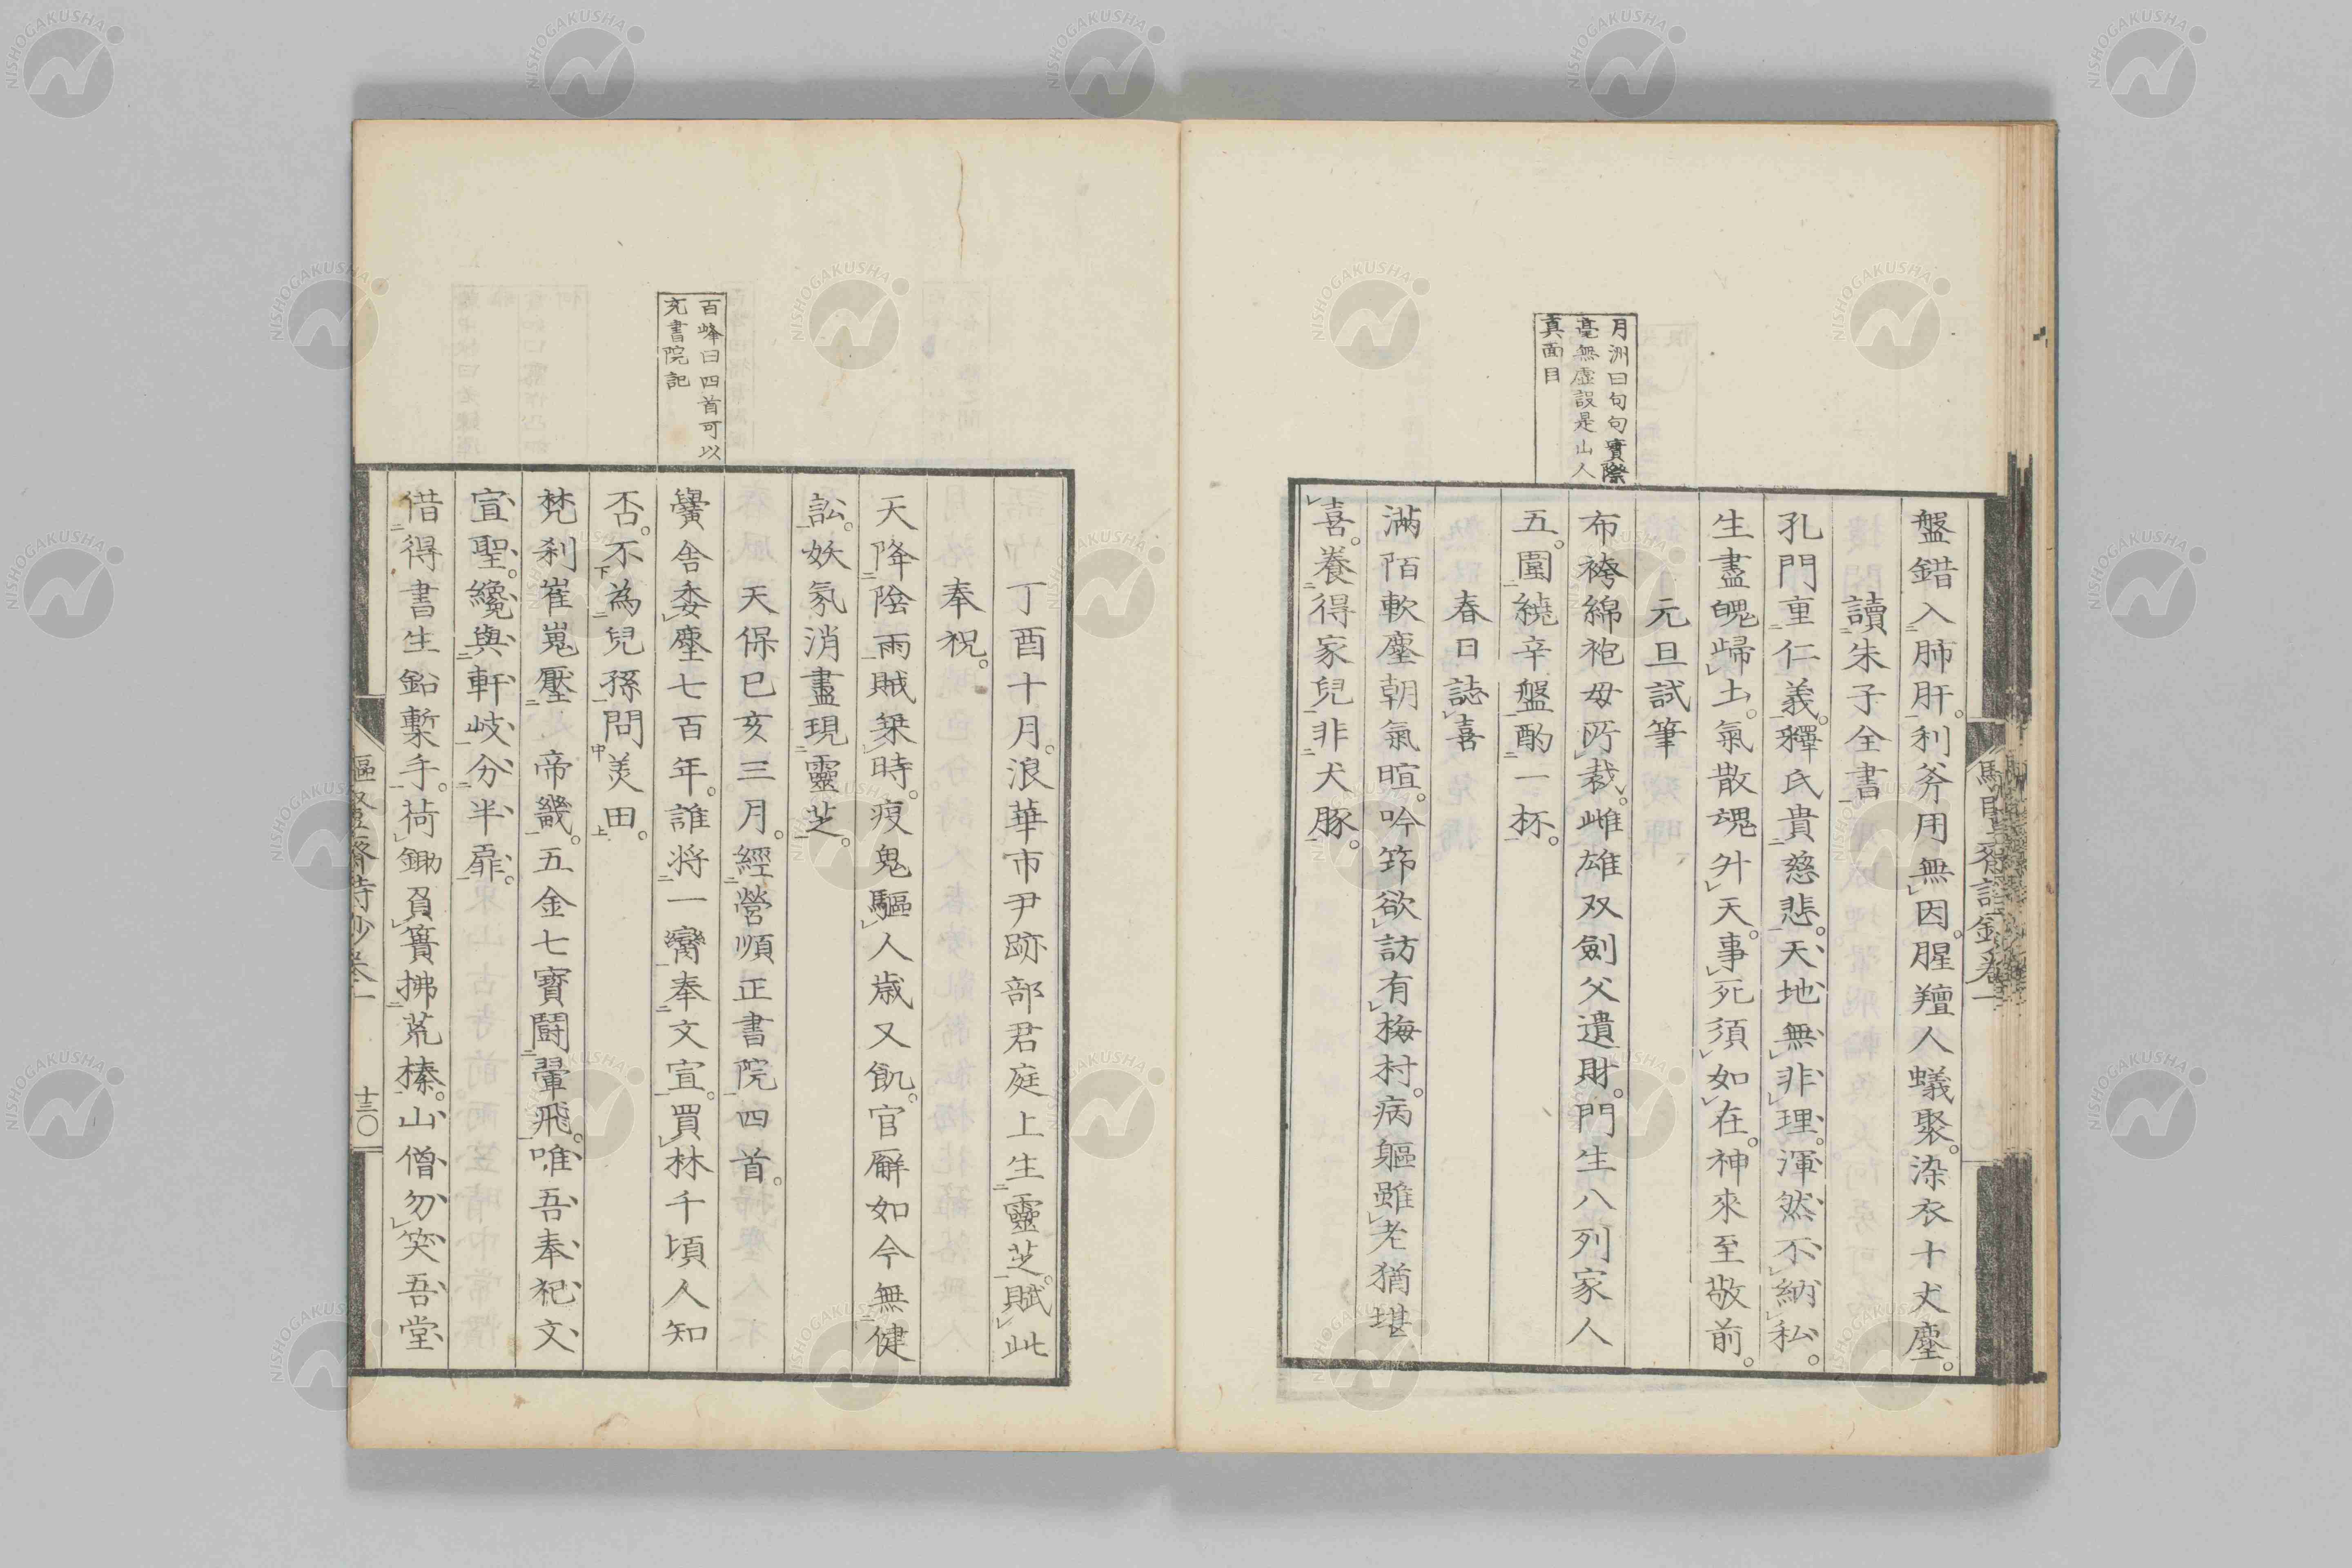 盤錯入肺肝。利斧用無因。腥羶人蟻聚。染衣十丈塵。
讀朱子全書
孔門重仁義。釋氏貴慈悲。天地無非理。渾然不納私。
生盡魄歸土。氣散魂升天。事死須如在。神來至敬前。
元旦試筆
月洲曰句句實際
毫無虛設是山人
真面目
布袴綿袍母所裁。雌雄双劍父遺財。門生八列家人
五。圍繞辛盤酌一杯。
春日誌喜
滿陌軟塵朝氣暄。吟筇欲訪有梅村。病軀雖老猶堪
喜。養得家兒非犬豚。
丁酉十月。浪華市尹跡部君庭上生靈芝。賦此
奉祝。
天降陰雨賊槼時。疫鬼驅人歲又飢。官廨如今無健
訟。妖氛消盡現靈芝。
天保己亥三月。經營順正書院四首。
百峰曰四首可以
充書院記
黌舍委塵七百年。誰将一臠奉文宣。買林千頃人知
否。不為兒孫問羙田。
梵刹崔嵬壓帝畿。五金七寶鬪翬飛。唯吾奉祀文
宣聖。纔與軒岐分半扉。
借得書生鉛槧手。荷鋤負簣拂荒榛。山僧勿笑吾堂